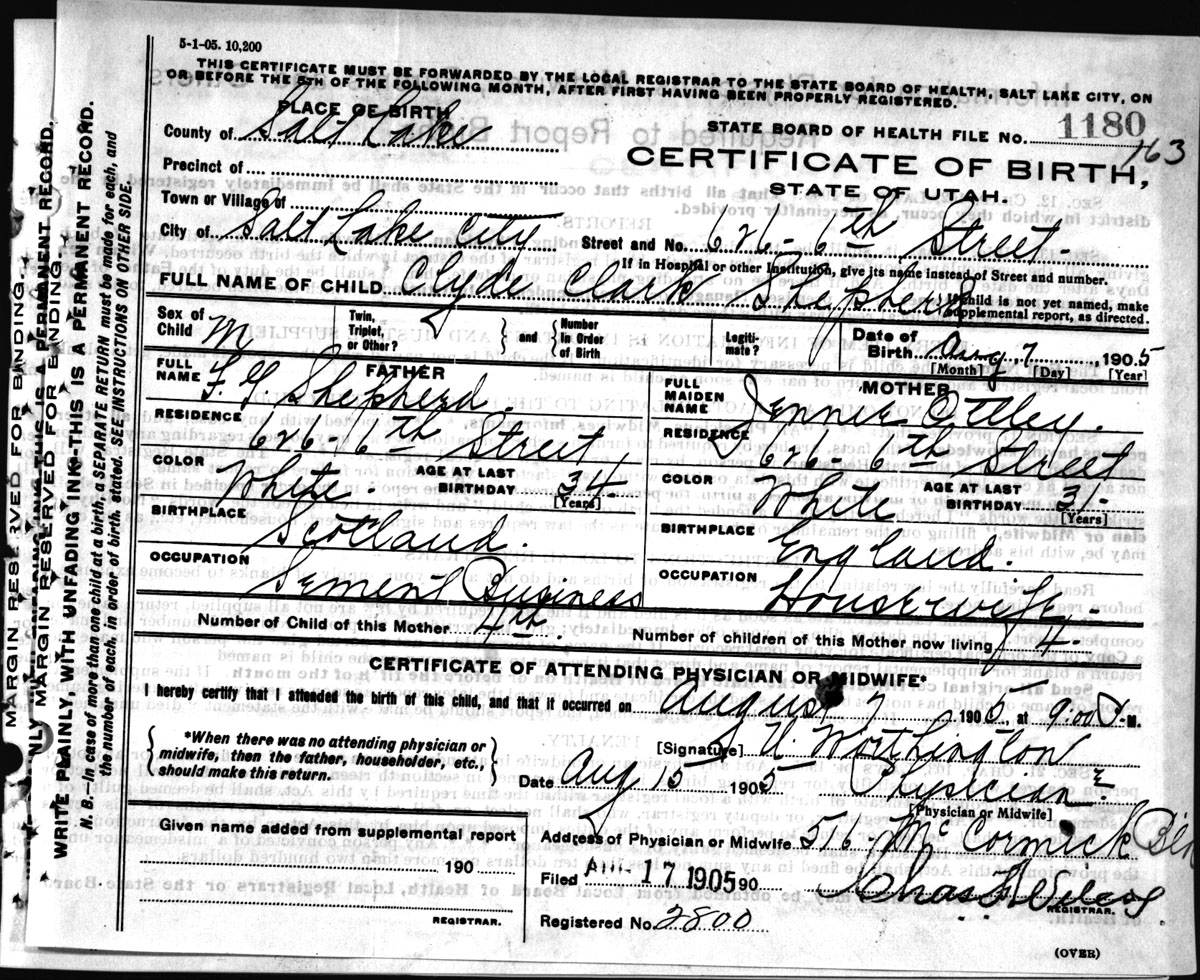 5-1-05. 10,200
THIS CERTIFICATE MUST BE FORWARDED BY THE LOCAL REGISTRAR TO THE STATE BOARD OF HEALTH, SALT LAKE CITY, ON
OR BEFORE THE 5TH OF THE FOLLOWING MONTH, AFTER FIRST HAVING BEEN PROPERLY REGISTERED.
PLACE OF BIRTH
County of Salt Lake
STATE BOARD OF HEALTH FILE No. 1180
163
CERTIFICATE OF BIRTH,
STATE OF UTAH.
Precinct of
Town or Village of
City of Salt Lake City Street and No. 626-6th Street.
If in Hospital or other Institution, give its name instead of Street and number.
FULL NAME OF CHILD Clyde Clark Shepherd
If child is not yet named, make
supplemental report, as directed.
Sex of Child M
Twin, Triplet, or Other?
and
Number in Order of Birth
Legitimate?
Date of Birth Aug 7 1905
[Month] [Day] [Year]
FATHER
FULL NAME F. Y. Shepherd.
RESIDENCE 626-6th Street
COLOR White. AGE AT LAST BIRTHDAY 34 [Years]
BIRTHPLACE Scotland.
OCCUPATION Sement Business
MOTHER
FULL MAIDEN NAME Jennie Ottley.
RESIDENCE 626-6th Street
COLOR White AGE AT LAST BIRTHDAY 31 [Years]
BIRTHPLACE England.
OCCUPATION Housewife-
Number of Child of this Mother 4th
Number of children of this Mother now living 4-
CERTIFICATE OF ATTENDING PHYSICIAN OR MIDWIFE*
I hereby certify that I attended the birth of this child, and that it occurred on August 7 1905, at 9.00 M.
*When there was no attending physician or
midwife, then the father, householder, etc.,
should make this return.
[Signature] U Worthington
Date Aug 15 1905 Physician
[Physician or Midwife]
Given name added from supplemental report
190
REGISTRAR.
Address of Physician or Midwife 576- McCormick
Filed AUG 17 1905 90
REGISTRAR.
Registered No. 2800
(OVER)
MARGIN RESERVED FOR BINDING.
MARGIN RESERVED FOR BINDING.
WRITE PLAINLY WITH UNFADING INK-THIS IS A PERMANENT RECORD.
N. B.-In case of more than one child at a birth, a SEPARATE RETURN must be made for each, and
the number of each, in order of birth, stated. SEE INSTRUCTIONS ON OTHER SIDE.